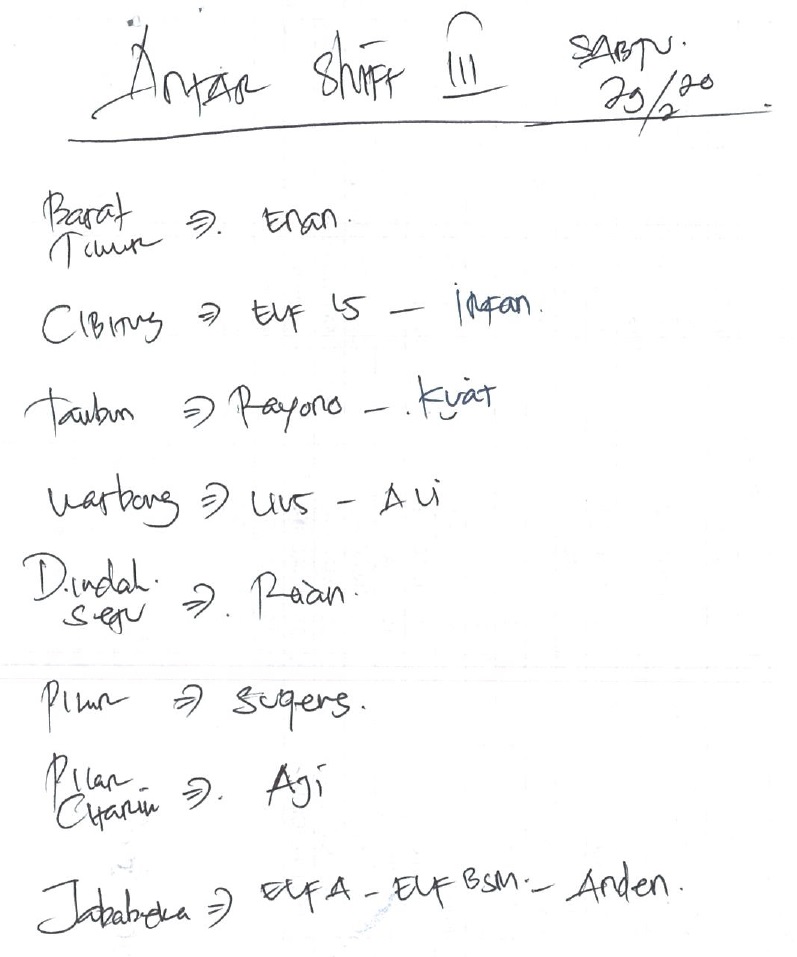 Antar Shift III SABTU.
29/2 20
Barat ⇒. Enan.
Timur
CIBITUNG ⇒ ELF LS – Irfan.
Tambun ⇒ Rayono – . Kyat
warbong ⇒ LUS – ALI
D.indah. ⇒. Raan.
segu
⇒ Sugers.
Pilar ⇒. Aji
Jababeka ⇒ ELF A – ELF BSM. – Anden.